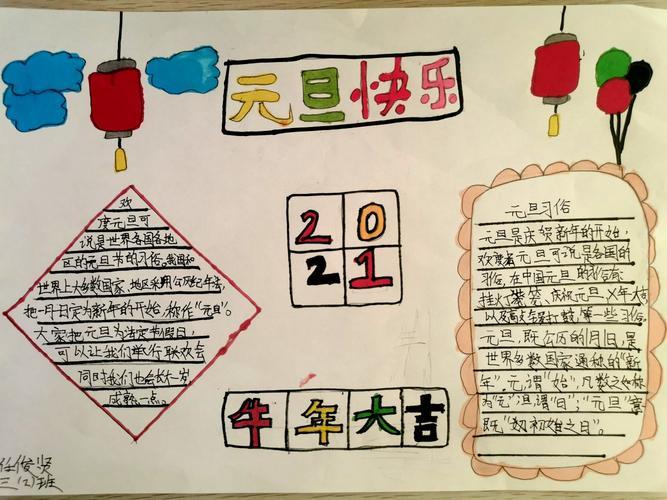 元旦快乐
欢
度元旦可
说是世界各国各地
区的元旦节的习俗,我国和
世界上大多数国家、地区采用公历纪年法,
把一月一日定为新年的开始,称作“元旦”。
大家把元旦为法定节假日,
可以让我们举行联欢会
同时我们也会长大一岁,
成熟一点。
20
21
牛年大吉
元旦习俗
元旦是庆祝新年的开始,
欢度元旦可说是各国的
习俗,在中国元旦的习俗有:
挂灯笼、庆祝元旦
以及敲锣打鼓,等一些习俗
元旦,既公历的1月1日,是
世界多数国家通称的“新
年”。元,谓“始”,凡数之始称
为“元”;旦,谓“日”;“元旦”意
既“初始之日”。
任俊
三(2)班